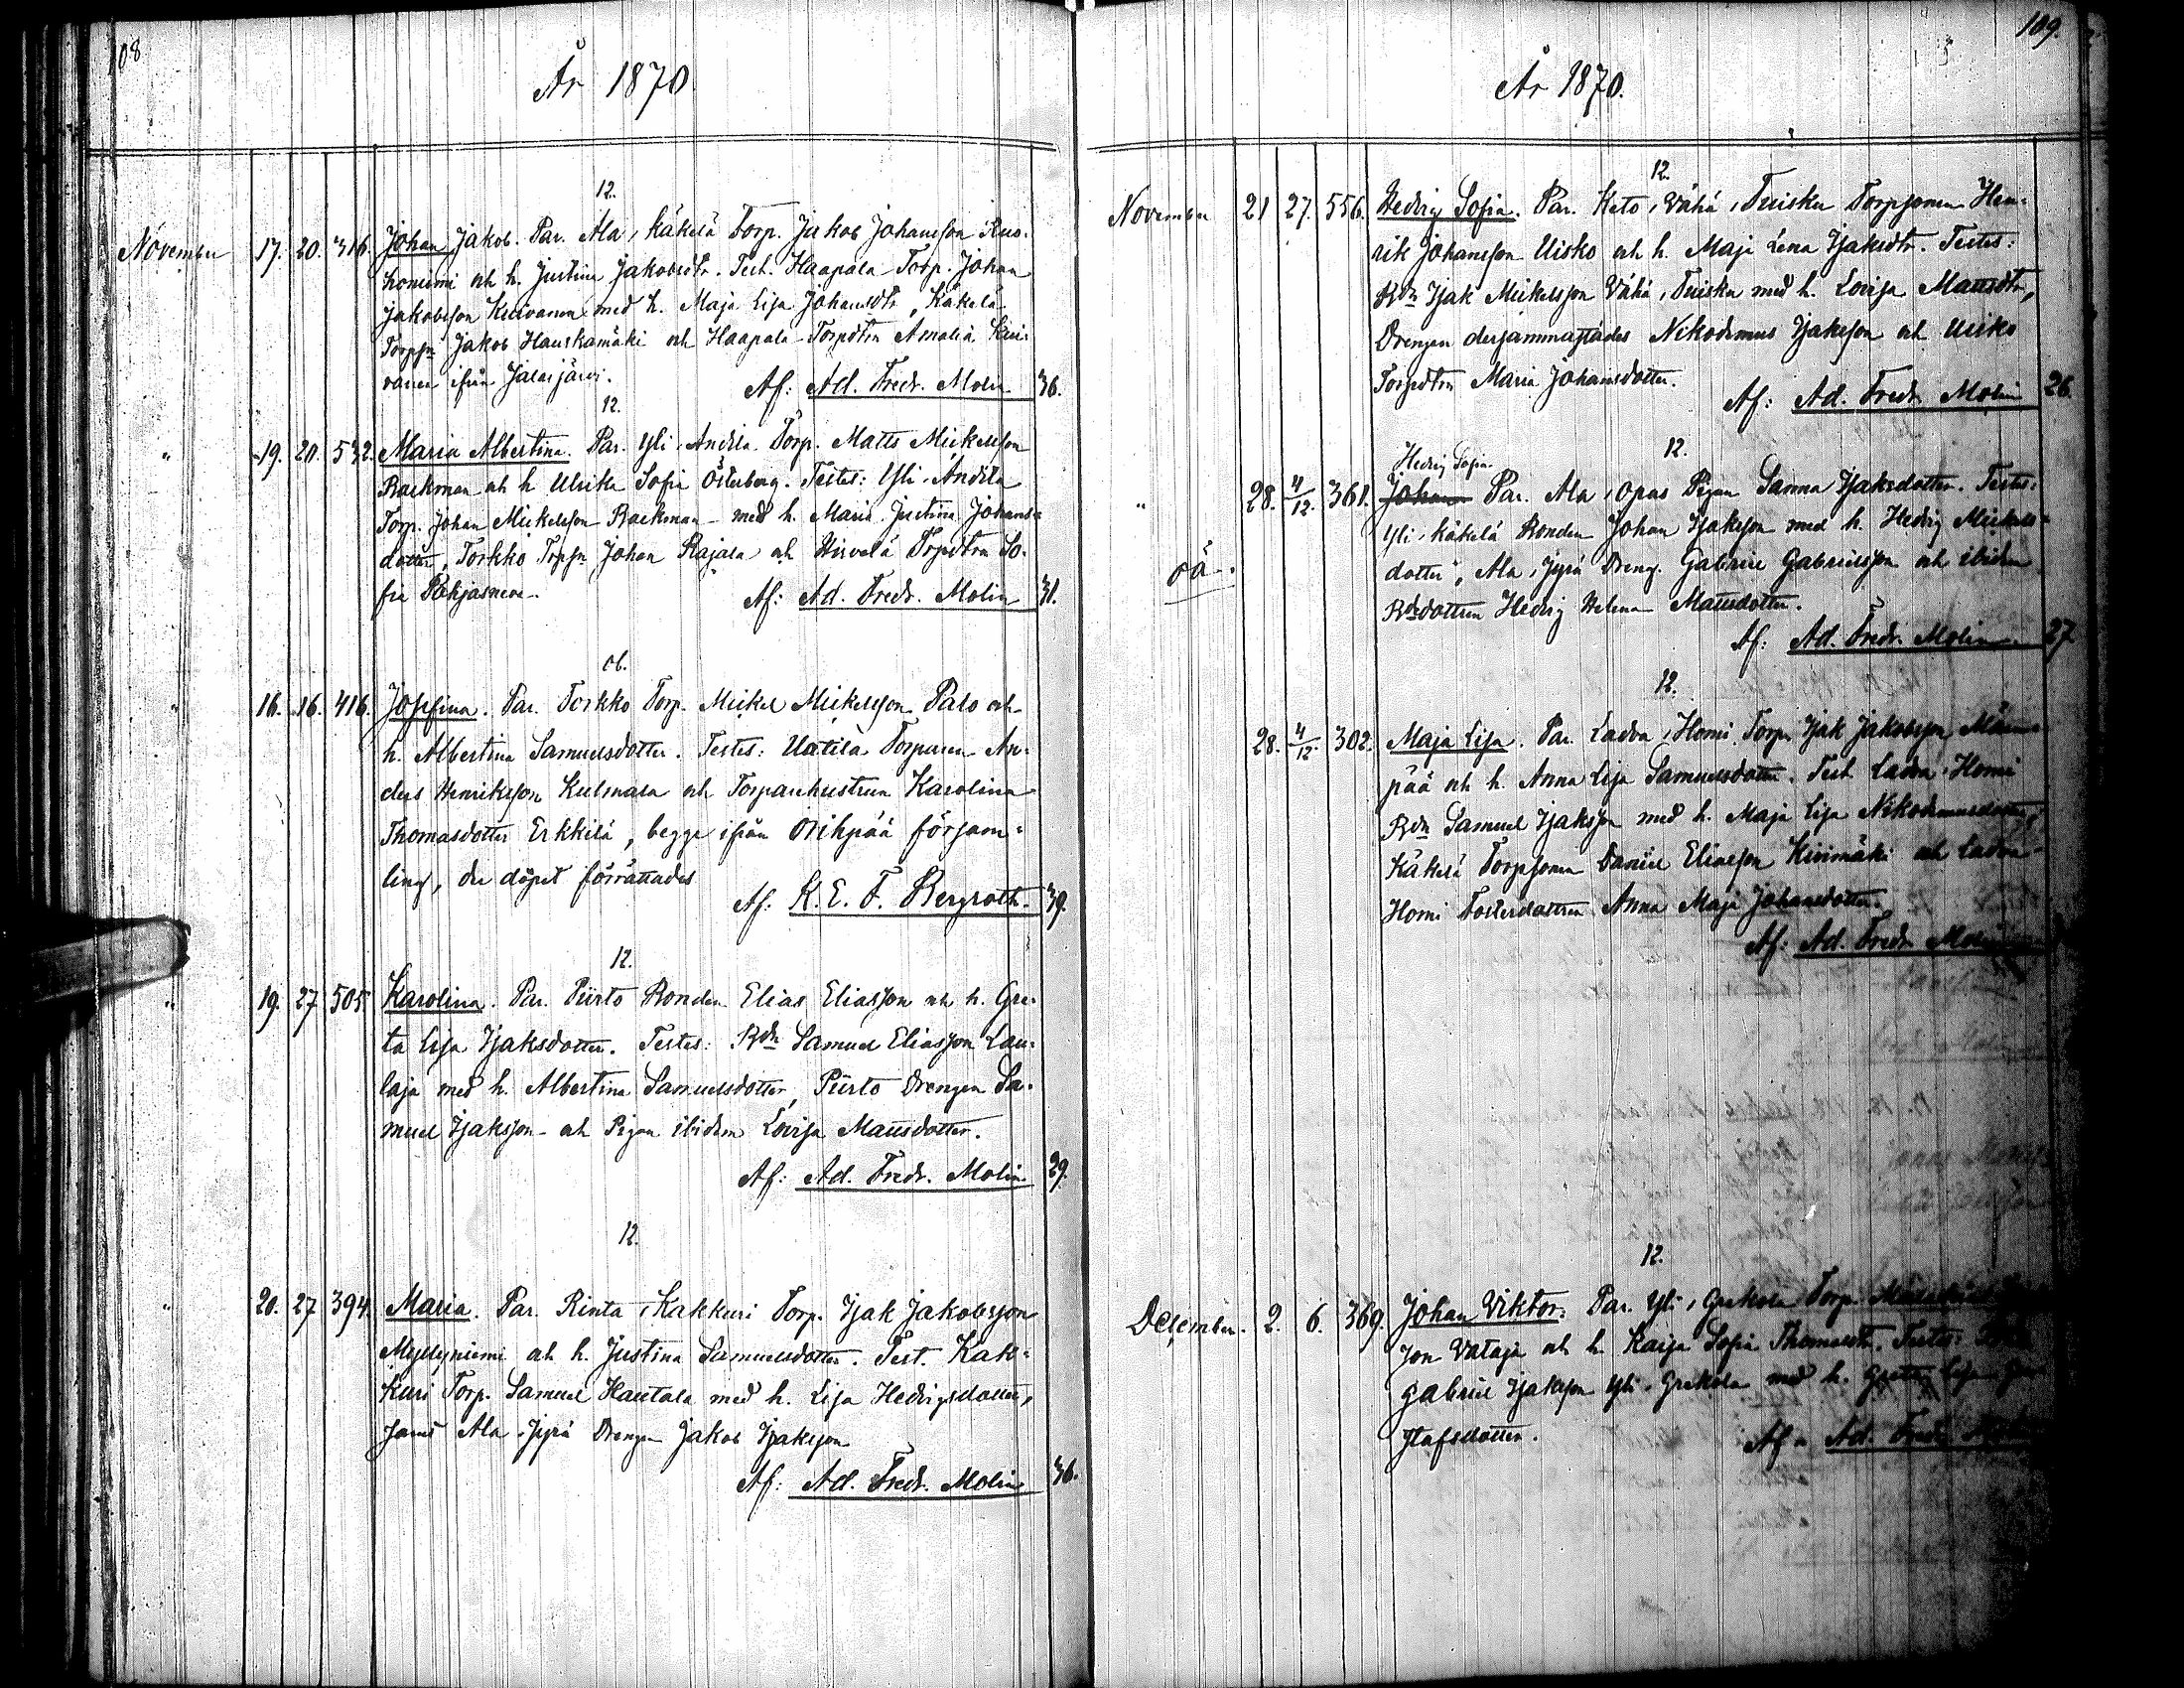 108
År 1870
12.
November 17. 20. 316. Johan Jakob. Par. Ala, Käkelä Torp. Jakob Johansson Ruo-
honiemi och h. Justina Jakobsdtr. Test. Haapala Torp. Johan
Jakobsson Kuivanen med h. Maja Lisa Johansdtr, Käkelä
Torpsn Jakob Hauskamäki och Haapala Torpdtrn Amalia Kui-
vanen ifrån Jalasjärvi.
Af: Ad. Fredr. Molin 36.
12.
" 19. 20. 532. Maria Albertina. Par. Yli, Andila Torp. Matts Mickelsson
Rackman och h Ulrika Sofia Österberg. Testes: Yli-Andila
Torp. Johan Mickelsson Rackman med h. Maria Justina Johans-
dotter, Torkko Torpsn Johan Rajala och Hirvelä Torpdtrn So-
fia
Af: Ad. Fredr. Molin 31.
ob.
" 16. 16. 416. Josefina. Par. Torkko Torp. Mickel Mickelsson Palo och
h. Albertina Samuelsdotter. Testes: Uatila Torparen An-
ders Henriksson Kulmala och Torparehustrun Karolina
Thomasdotter Erkkilä, begge ifrån Orihpää försam-
ling, der döpet förrättades
Af: K. E. F. Bergroth. 39.
12.
" 19. 27 505 Karolina. Par. Piirto Bonden Elias Eliasson och h. Gre-
ta Lisa Isaksdotter. Testes: Bdn Samuel Eliasson Lau-
laja med h. Albertina Samuelsdotter, Piirto Drengen Sa-
muel Isaksson och Pigan ibidem Lovisa Mattsdotter.
Af: Ad. Fredr. Molin 29.
12.
" 20. 27 394. Maria. Par. Rinta, Kakkuri Torp. Isak Jakobsson
Myllyniemi och h. Justina Samuelsdotter. Test. Kak-
kuri Torp. Samuel Hautala med h. Lisa Hedvigsdotter,
samt Ala-Jyrä Drengen Jakob Isaksson
Af: Ad. Fredr. Molin 36.
109.
År 1870.
12.
November 21 27. 556. Hedvig Sofia. Par. Keto, Vähä, Tuisku Torpsonen Hen-
rik Johansson Uisko och h. Maja Lena Isaksdtr. Testes:
Bdn Isak Mickelsson Vähä, Tuisku med h. Lovisa Mattsdtr,
Drengen dersammastädes Nikodemus Isaksson och Uisko
Torpdtrn Maria Johansdotter.
Af: Ad. Fredr. Molin 26.
12.
Hedvig Sofia.
" 28. 4/12. 361. Johan Par. Ala, Opas Pigan Sanna Isaksdotter. Testes:
Yli, Käkelä Bonden Johan Isaksson med h. Hedvig Mickels-
oä. dotter, Ala, Jyrä Dreng. Gabriel Gabrielsson och ibidem
Bdedottren Hedvig Helena Mattsdotter.
Af: Ad. Fredr. Molin 27
12.
28. 4/12. 302. Maja Lisa. Par. Ladva, Homi Torp. Isak Jakobsson
pää och h. Anna Lisa Samuelsdotter. Test Ladva, Homi
Bdn Samuel Isaksson med h. Maja Lisa Nikodemusdotter,
Käkelä Torpsonen Daniel Eliasson Kivimäki och Ladva-
Homi Fosterdottren Anna Maja Johansdotter.
Af: Ad. Fredr. Molin
12.
December. 2. 6. 369. Johan Viktor. Par. Yli, Grekola Torp.
son Vataja och h. Kaisa Sofia Thomasdtr. Testes:
Gabriel Isaksson Yli-Grekola med h. Greta Lisa
stafsdotter.
Af: Ad. Fredr.